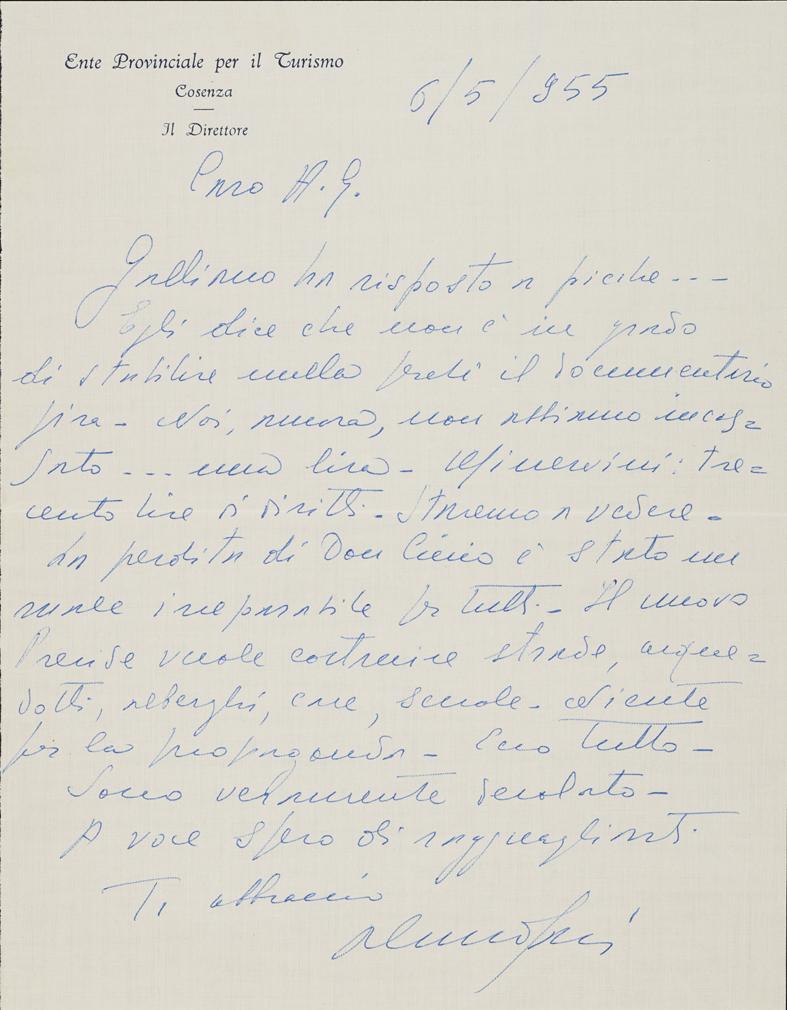 Ente Provinciale per il Turismo
Cosenza
Il Direttore
6/5/955
Caro A. G.
Gullimo ha risposto a picche - - -
Egli dice che non è in grado
di stabilire nulla perché il documentario
gira - Noi, ancora, non abbiamo incas=
sato - - - una lira - Minervini: tre=
cento lire di diritti - Staremo a vedere -
La perdita di Don Ciccio è stato un
male irreparabile per tutti - Il nuovo
Preside vuole costruire strade, acque=
dotti, alberghi, case, scuole - Niente
per la propaganda - Ecco tutto -
Sono veramente desolato -
A voce spero di ragguagliarti.
Ti abbraccio